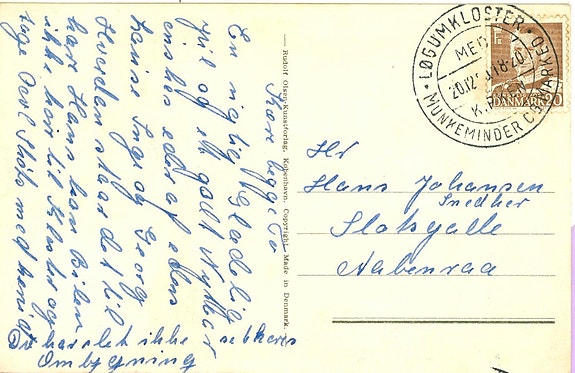 Kære begge To
En rigtig Glædelig
Jul og et godt Nytaar
ønskes eder af eders
Louise Inger og Georg
Hvordan staar det til
har Hans kan Bilen
ikke køre til Kloster og
tage Oerl Skots med hen i
Du har slet ikke set vores
Ombygning
Rudolf Olsens Kunstforlag, København. Copyright. Made in Denmark.
LØGUMKLOSTER
MED
20.12. 18-20
K. P.
MUNKEMINDER
DANMARK 20
Hr
Hans Johansen
Snedker
Slotsgalle
Aabenraa